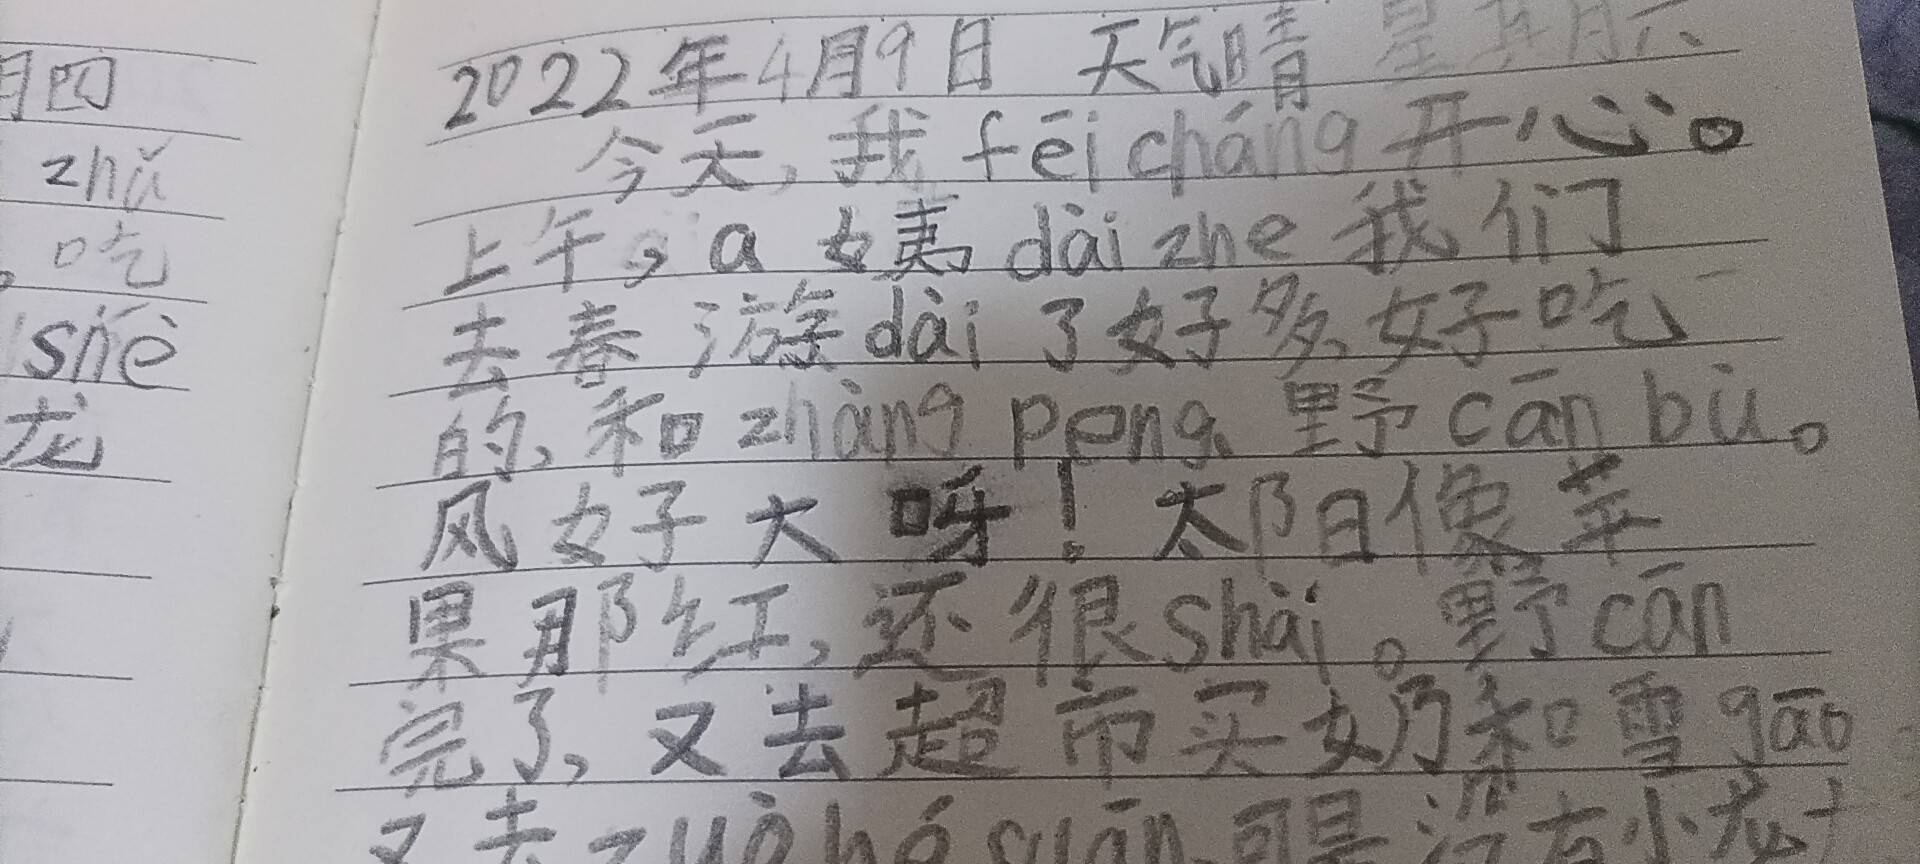 月四
zhǔ
吃
shé
龙
2022年4月9日 天气晴 星期六
今天,我fēicháng开心。
上午,a姨dàizhe我们
去春游dài了好多好吃
的,和zhàngpeng、野cānbù。
风好大呀!太阳像苹
果那红,还很shài。野cān
完了,又去超市买奶和雪gāo
又去zuòhé
可是没有小龙